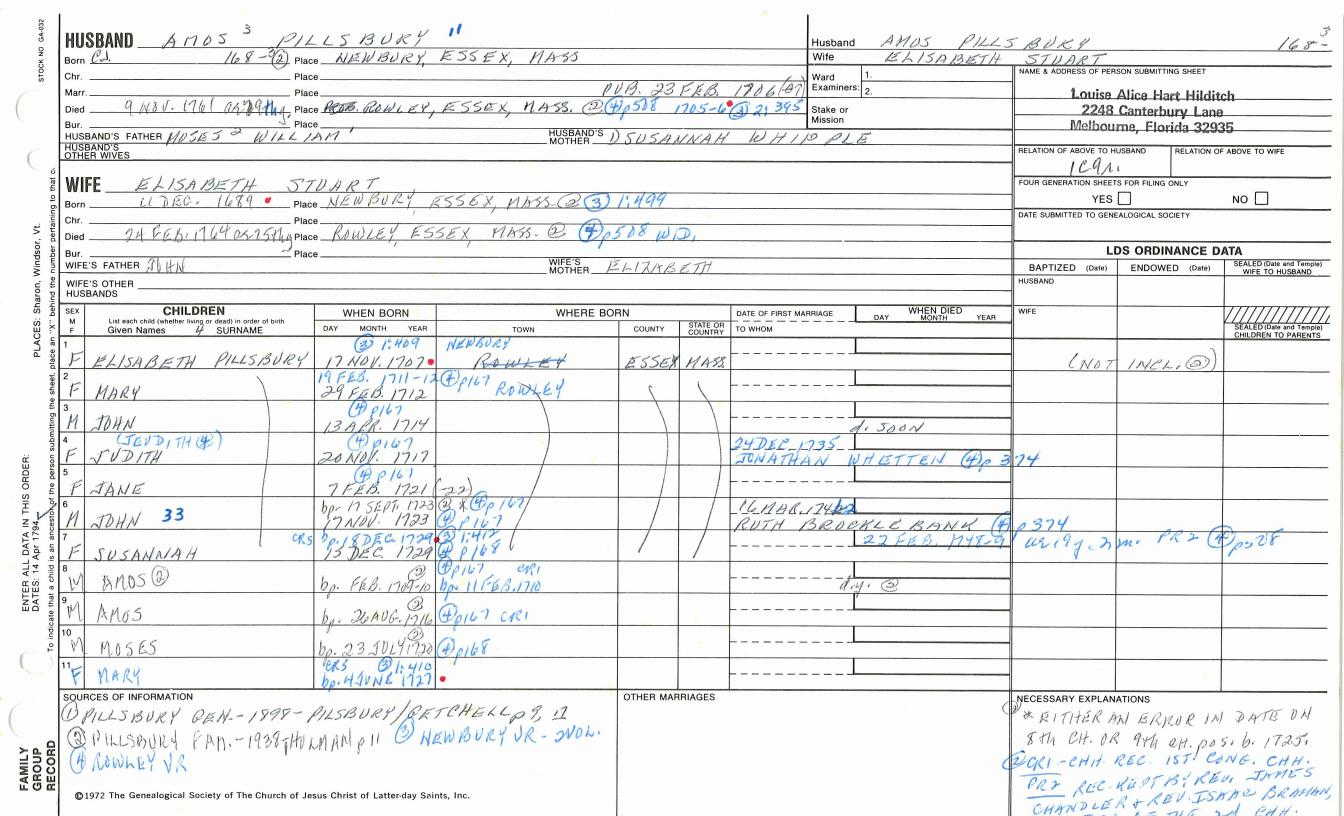 STOCK NO. GA-032
HUSBAND AMOS 3 PILLSBURY 11
Husband AMOS PILLSBURY 168- 3
Born CJ. 168- ② Place NEWBURY, ESSEX, MASS
Wife ELISABETH STUART
Chr. Place
Ward Examiners: 1. 2.
NAME & ADDRESS OF PERSON SUBMITTING SHEET
Louise Alice Hart Hilditch
2248 Canterbury Lane
Melbourne, Florida 32935
Marr. Place PUB. 23 FEB. 1706
Died 9 NOV. 1761 Place ROWLEY, ESSEX, MASS. ② ④ p508 1705-6 ③ 2: 395
Stake or Mission
Bur. Place
HUSBAND'S FATHER MOSES 2 WILLIAM 1 HUSBAND'S MOTHER SUSANNAH WHIPPLE
HUSBAND'S OTHER WIVES
RELATION OF ABOVE TO HUSBAND RELATION OF ABOVE TO WIFE
WIFE ELISABETH STUART
FOUR GENERATION SHEETS FOR FILING ONLY
YES NO
Born 11 DEC. 1689 Place NEWBURY, ESSEX, MASS ② ③ 1:499
Chr. Place
DATE SUBMITTED TO GENEALOGICAL SOCIETY
Died 24 FEB. 1764 or 25th Place ROWLEY, ESSEX, MASS. ② ④ p508 WID.
Bur. Place
LDS ORDINANCE DATA
WIFE'S FATHER JOHN WIFE'S MOTHER ELIZABETH
BAPTIZED (Date) ENDOWED (Date) SEALED (Date and Temple) WIFE TO HUSBAND
WIFE'S OTHER HUSBANDS
HUSBAND
SEX M F CHILDREN List each child (whether living or dead) in order of birth Given Names 4 SURNAME
WHEN BORN DAY MONTH YEAR WHERE BORN TOWN COUNTY STATE OR COUNTRY
DATE OF FIRST MARRIAGE TO WHOM WHEN DIED DAY MONTH YEAR
WIFE
SEALED (Date and Temple) CHILDREN TO PARENTS
③ 1:409 NEWBURY
1 F ELISABETH PILLSBURY 17 NOV. 1707 ROWLEY ESSEX MASS (NOT INCL. ②)
19 FEB. 1711-12 ④ p167
2 F MARY 29 FEB. 1712 ROWLEY
④ p167
3 M JOHN 13 APR. 1714 d. SOON
(JEUDITH ④) ④ p167 24 DEC. 1735
4 F JUDITH 20 NOV. 1717 JONATHAN WHETTEN ④ p 374
④ p161
5 F JANE 7 FEB. 1721 (-22)
bp. 17 SEPT. 1723 ② * ④ p167
6 M JOHN 33 17 NOV. 1723 ④ p167 RUTH BROCKLEBANK ④ p374
CRS bp. 18 DEC. 1729 ③ 1:412 22 FEB. 1748-9
7 F SUSANNAH 13 DEC. 1729 ④ p168 PR2 ④ p528
② ④ p167 CR1
8 M AMOS ② bp. FEB. 1709-10 bp. 11 FEB. 1710 d.y. ②
②
9 M AMOS bp. 26 AUG. 1716 ④ p167 CR1
②
10 M MOSES bp. 23 JULY 1720 ④ p168
CRS ③ 1:410
11 F MARY bp. 4 JUNE 1727
SOURCES OF INFORMATION OTHER MARRIAGES NECESSARY EXPLANATIONS
① PILLSBURY GEN.- 1898- PILSBURY/GETCHELL p 9, 11
② PILLSBURY FAM.- 1938 HOLMAN p 11 ③ NEWBURY VR - 2 VOL.
④ ROWLEY VR
* EITHER AN ERROR IN DATE ON
8th CH. OR 9th CH. pos. b. 1725.
CR1 - CHH REC. 1ST CONG. CHH.
PR2 REC. KEPT BY REV. JAMES
CHANDLER & REV. ISAAC BRAMAN,
©1972 The Genealogical Society of The Church of Jesus Christ of Latter-day Saints, Inc.
FAMILY GROUP RECORD
ENTER ALL DATA IN THIS ORDER:
DATES: 14 Apr 1794
PLACES: Sharon, Windsor, Vt.
To indicate that a child is an ancestor of the person submitting the sheet, place an "X" behind the number pertaining to that c